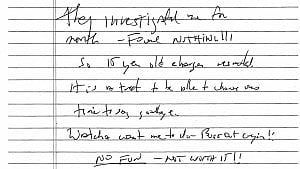 They investigated me for
month – Found NOTHING!!!
So 15 year old charges resulted
It is a treat to be able to choose ones
time to say goodbye.
Watcha want me to do – Burst out crying!!
NO FUN – NOT WORTH IT!!